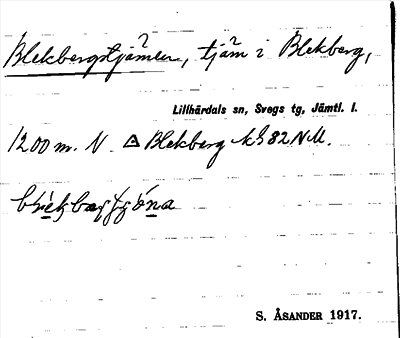 Blekbergstjärnen, tjärn i Blekberg,
Lillhärdals sn, Svegs tg, Jämtl. l.
1200 m. N Δ Blekberg k
S. ÅSANDER 1917.